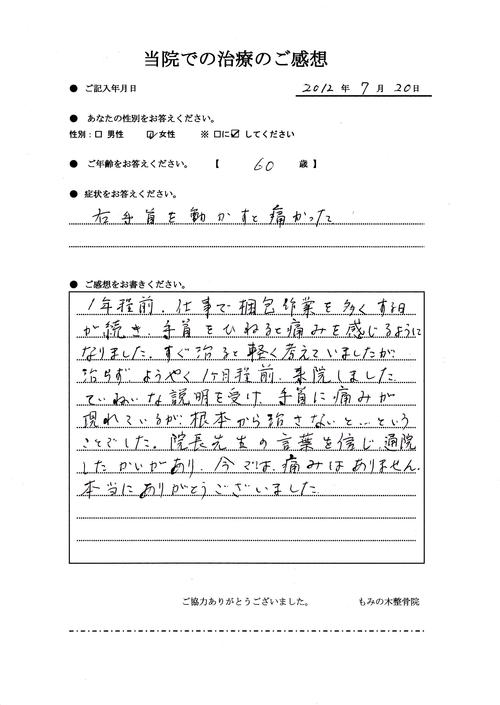 当院での治療のご感想
● ご記入年月日 2012 年 7 月 20 日
● あなたの性別をお答えください。
性別：□ 男性 ☑ 女性 ※ □に☑ してください
● ご年齢をお答えください。 【 60 歳 】
● 症状をお答えください。
右手首を動かすと痛かった
● ご感想をお書きください。
1年程前、仕事で梱包作業を多くする日
が続き、手首をひねると痛みを感じるように
なりました。すぐ治ると軽く考えていましたが
治らず、ようやく1ヶ月程前、来院しました。
ていねいな説明を受け、手首に痛みが
現れているが、根本から治さないと…という
ことでした。院長先生の言葉を信じ通院
したかいがあり、今では、痛みはありません。
本当にありがとうございました。
ご協力ありがとうございました。 もみの木整骨院